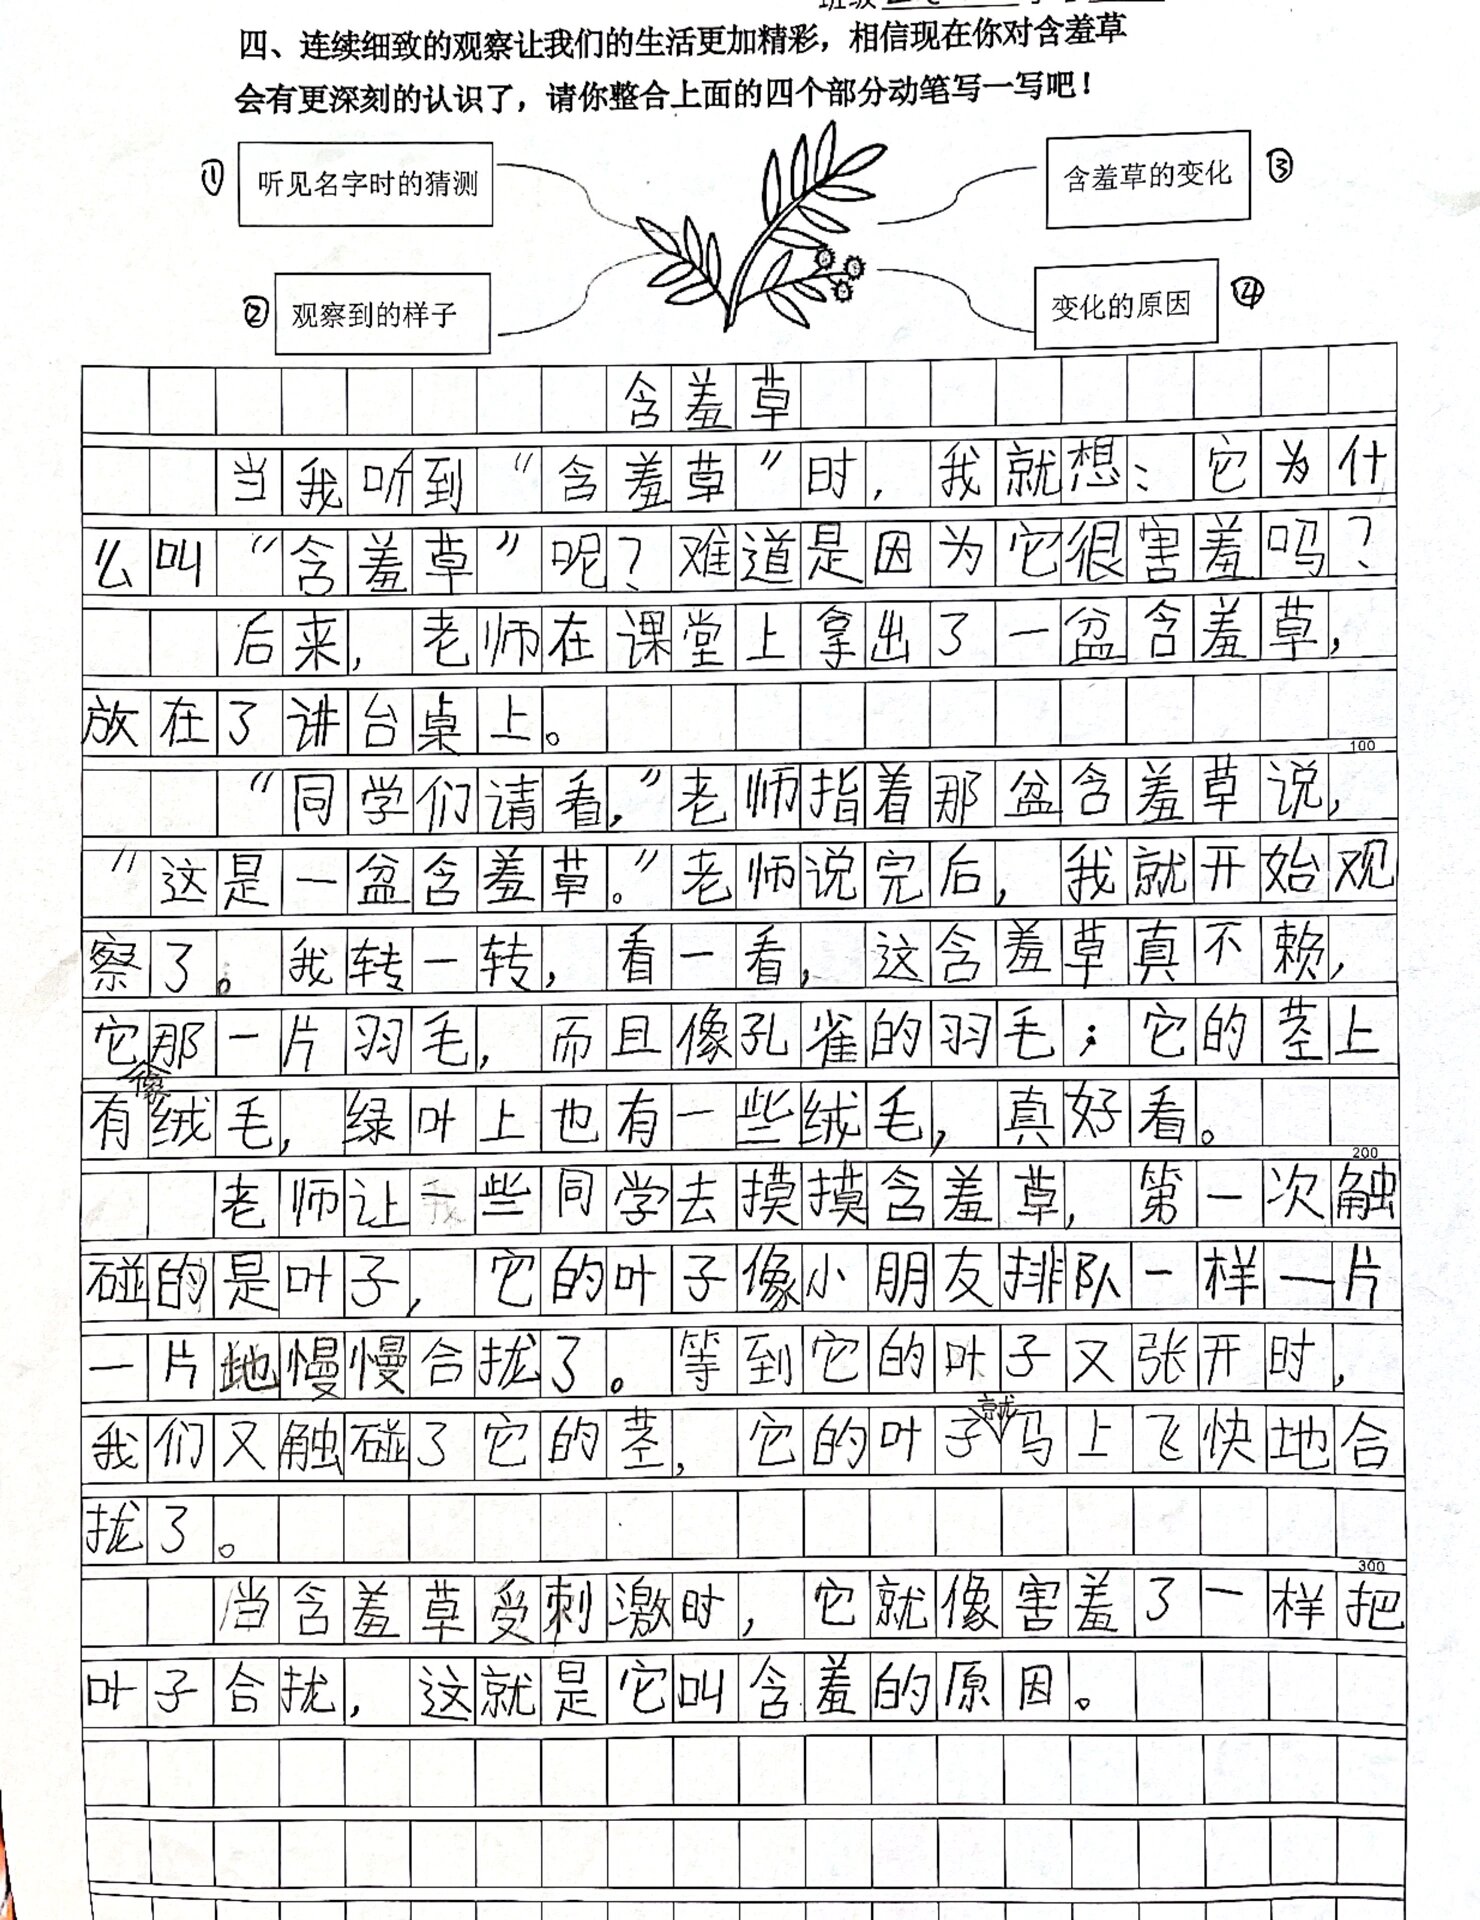 四、连续细致的观察让我们的生活更加精彩，相信现在你对含羞草
会有更深刻的认识了，请你整合上面的四个部分动笔写一写吧！
① 听见名字时的猜测
含羞草的变化 ③
② 观察到的样子
变化的原因 ④
含羞草
当我听到“含羞草”时，我就想：它为什
么叫“含羞草”呢？难道是因为它很害羞吗？
后来，老师在课堂上拿出了一盆含羞草，
放在了讲台桌上。
100
“同学们请看，”老师指着那盆含羞草说，
“这是一盆含羞草。”老师说完后，我就开始观
察了。我转一转，看一看，这含羞草真不赖，
它像那一片羽毛，而且像孔雀的羽毛；它的茎上
有绒毛，绿叶上也有一些绒毛，真好看。
200
老师让一些同学去摸摸含羞草，第一次触
碰的是叶子，它的叶子像小朋友排队一样一片
一片地慢慢合拢了。等到它的叶子又张开时，
我们又触碰了它的茎，它的叶子就马上飞快地合
拢了。
300
当含羞草受刺激时，它就像害羞了一样把
叶子合拢，这就是它叫含羞的原因。